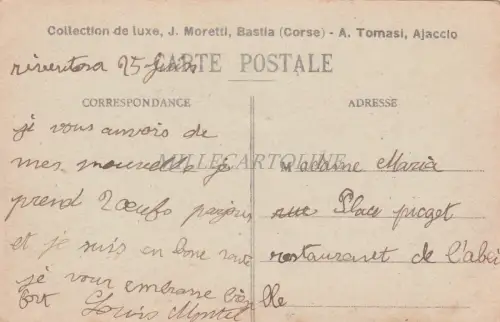 Collection de luxe, J. Moretti, Bastia (Corse) - A. Tomasi, Ajaccio
CARTE POSTALE
riventosa 25 juin
CORRESPONDANCE
je vous anvois de
mes nouvelle je
prend 2 oeufs parjour
et je suis en bone
je vour embrasse bien
fort Louis
ADRESSE
Madame Maria
rue Place puget
restauranet de l'abei
lle
MILLECARTOLINE